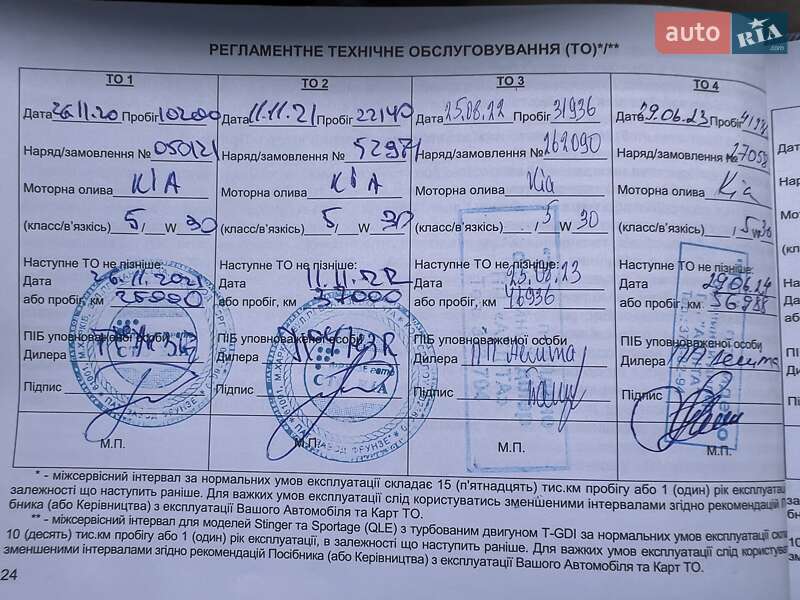 auto RIA .com
РЕГЛАМЕНТНЕ ТЕХНІЧНЕ ОБСЛУГОВУВАННЯ (ТО)*/**
ТО 1 ТО 2 ТО 3 ТО 4
Дата 26.11.20 Пробіг 10200 Дата 11.11.21 Пробіг 22140 Дата 25.08.22 Пробіг 31936 Дата 29.06.23 Пробіг
Наряд/замовлення № 050121 Наряд/замовлення № Наряд/замовлення № 162090 Наряд/замовлення № 27058
Моторна олива KIA Моторна олива KIA Моторна олива Kia Моторна олива Kia
(класс/в'язкість) 5/ W 30 (класс/в'язкість) 5/ W 30 (класс/в'язкість) 5 W 30 (класс/в'язкість) / 5 W 30
Наступне ТО не пізніше: Наступне ТО не пізніше: Наступне ТО не пізніше: Наступне ТО не пізніше:
Дата 26.11.2021 Дата 11.11.22 Дата 25.08.23 Дата 29.06.24
або пробіг, км 25000 або пробіг, км 37000 або пробіг, км 46936 або пробіг, км 56988
ПІБ уповноваженої особи ПІБ уповноваженої особи ПІБ уповноваженої особи ПІБ уповноваженої особи
Дилера Дилера Дилера Дилера
Підпис Підпис Підпис Підпис
М.П. М.П. М.П. М.П.
* - міжсервісний інтервал за нормальних умов експлуатації складає 15 (п'ятнадцять) тис.км пробігу або 1 (один) рік
залежності що наступить раніше. Для важких умов експлуатації слід користуватись зменшеними інтервалами згідно рекомендацій
бника (або Керівництва) з експлуатації Вашого Автомобіля та Карт ТО.
** - міжсервісний інтервал для моделей Stinger та Sportage (QLE) з турбованим двигуном T-GDI за нормальних умов експлуатації
10 (десять) тис.км пробігу або 1 (один) рік експлуатації, в залежності що наступить раніше. Для важких умов експлуатації слід
зменшеними інтервалами згідно рекомендацій Посібника (або Керівництва) з експлуатації Вашого Автомобіля та Карт ТО.
24